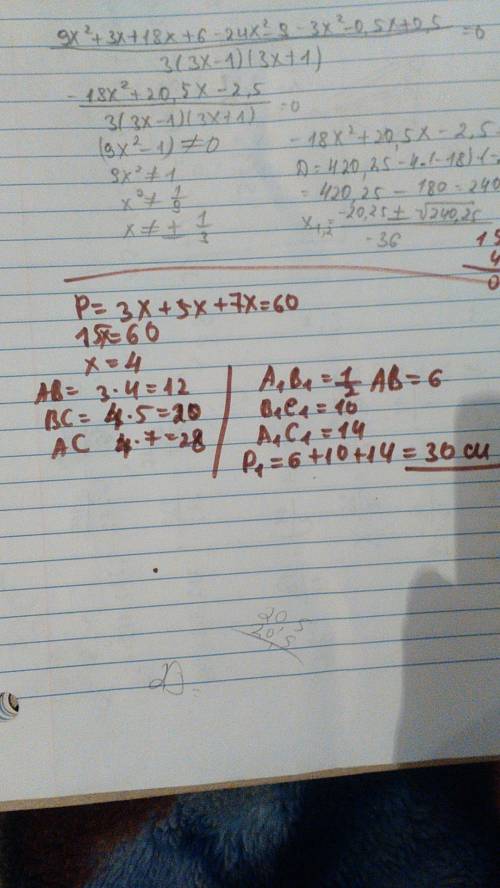 9x²+3x+18x+6-24x²-9-3x²-0,5x+0,5 =0
3(3x-1)(3x+1)
-18x²+20,5x-2,5 =0
3(3x-1)(3x+1)
(9x²-1)≠0
9x²≠1
x²≠1/9
x≠±1/3
-18x²+20,5x-2,5
D=420,25-4.(-18).(-2
=420,25-180=240
x₁,₂= -20,25±√240,25
-36
P=3x+5x+7x=60
15x=60
x=4
AB=3.4=12
BC=4.5=20
AC 4.7=28
A₁B₁=1/2 AB=6
B₁C₁=10
A₁C₁=14
P₁=6+10+14=30 см
20,5
20,5
D